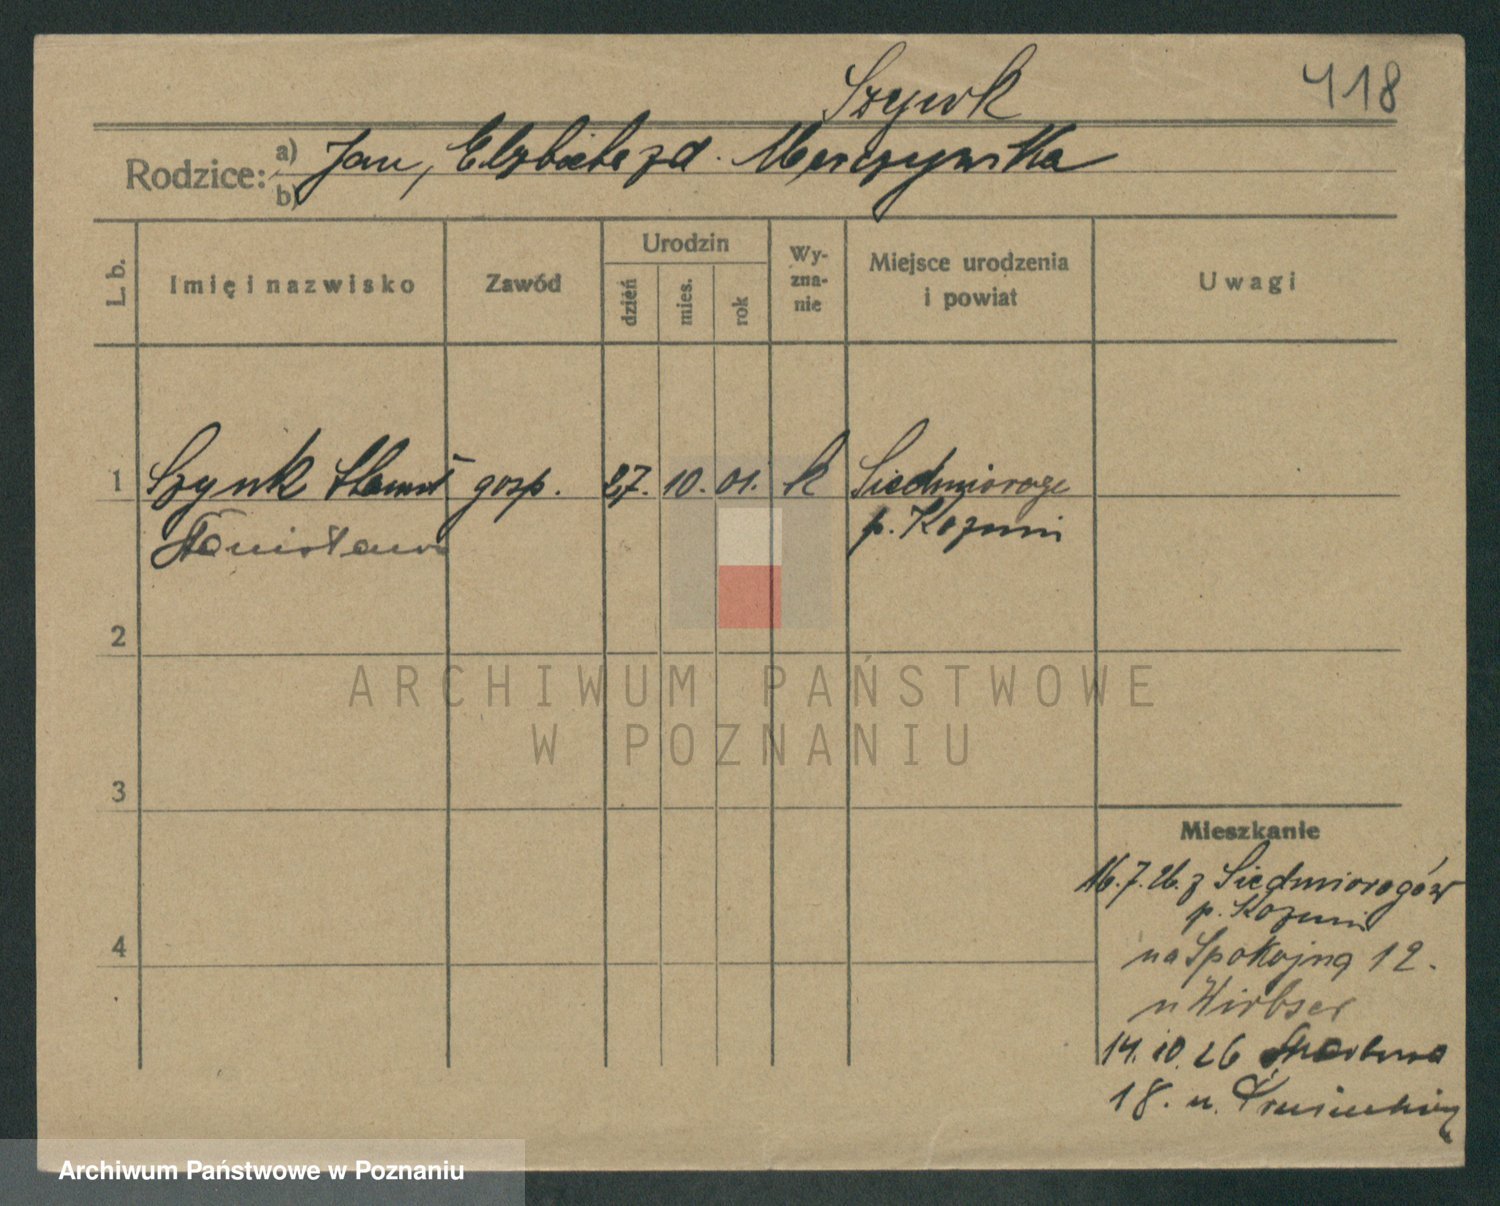 418
Szynk
Rodzice: a) Jan, Elżbieta zd.
b)
L. b.
Imię i nazwisko
Zawód
Urodzin
dzień
mies.
rok
Wy-
zna-
nie
Miejsce urodzenia
i powiat
Uwagi
1 Szynk gosp. 27. 10. 01. k
p. Koźmin
Stanisława
2
ARCHIWUM PAŃSTWOWE
W POZNANIU
3
Mieszkanie
16.7.26. z Siedmiorogów
p. Koźmin
4
na Spokojną 12.
u
14.10.26
18. u.
Archiwum Państwowe w Poznaniu